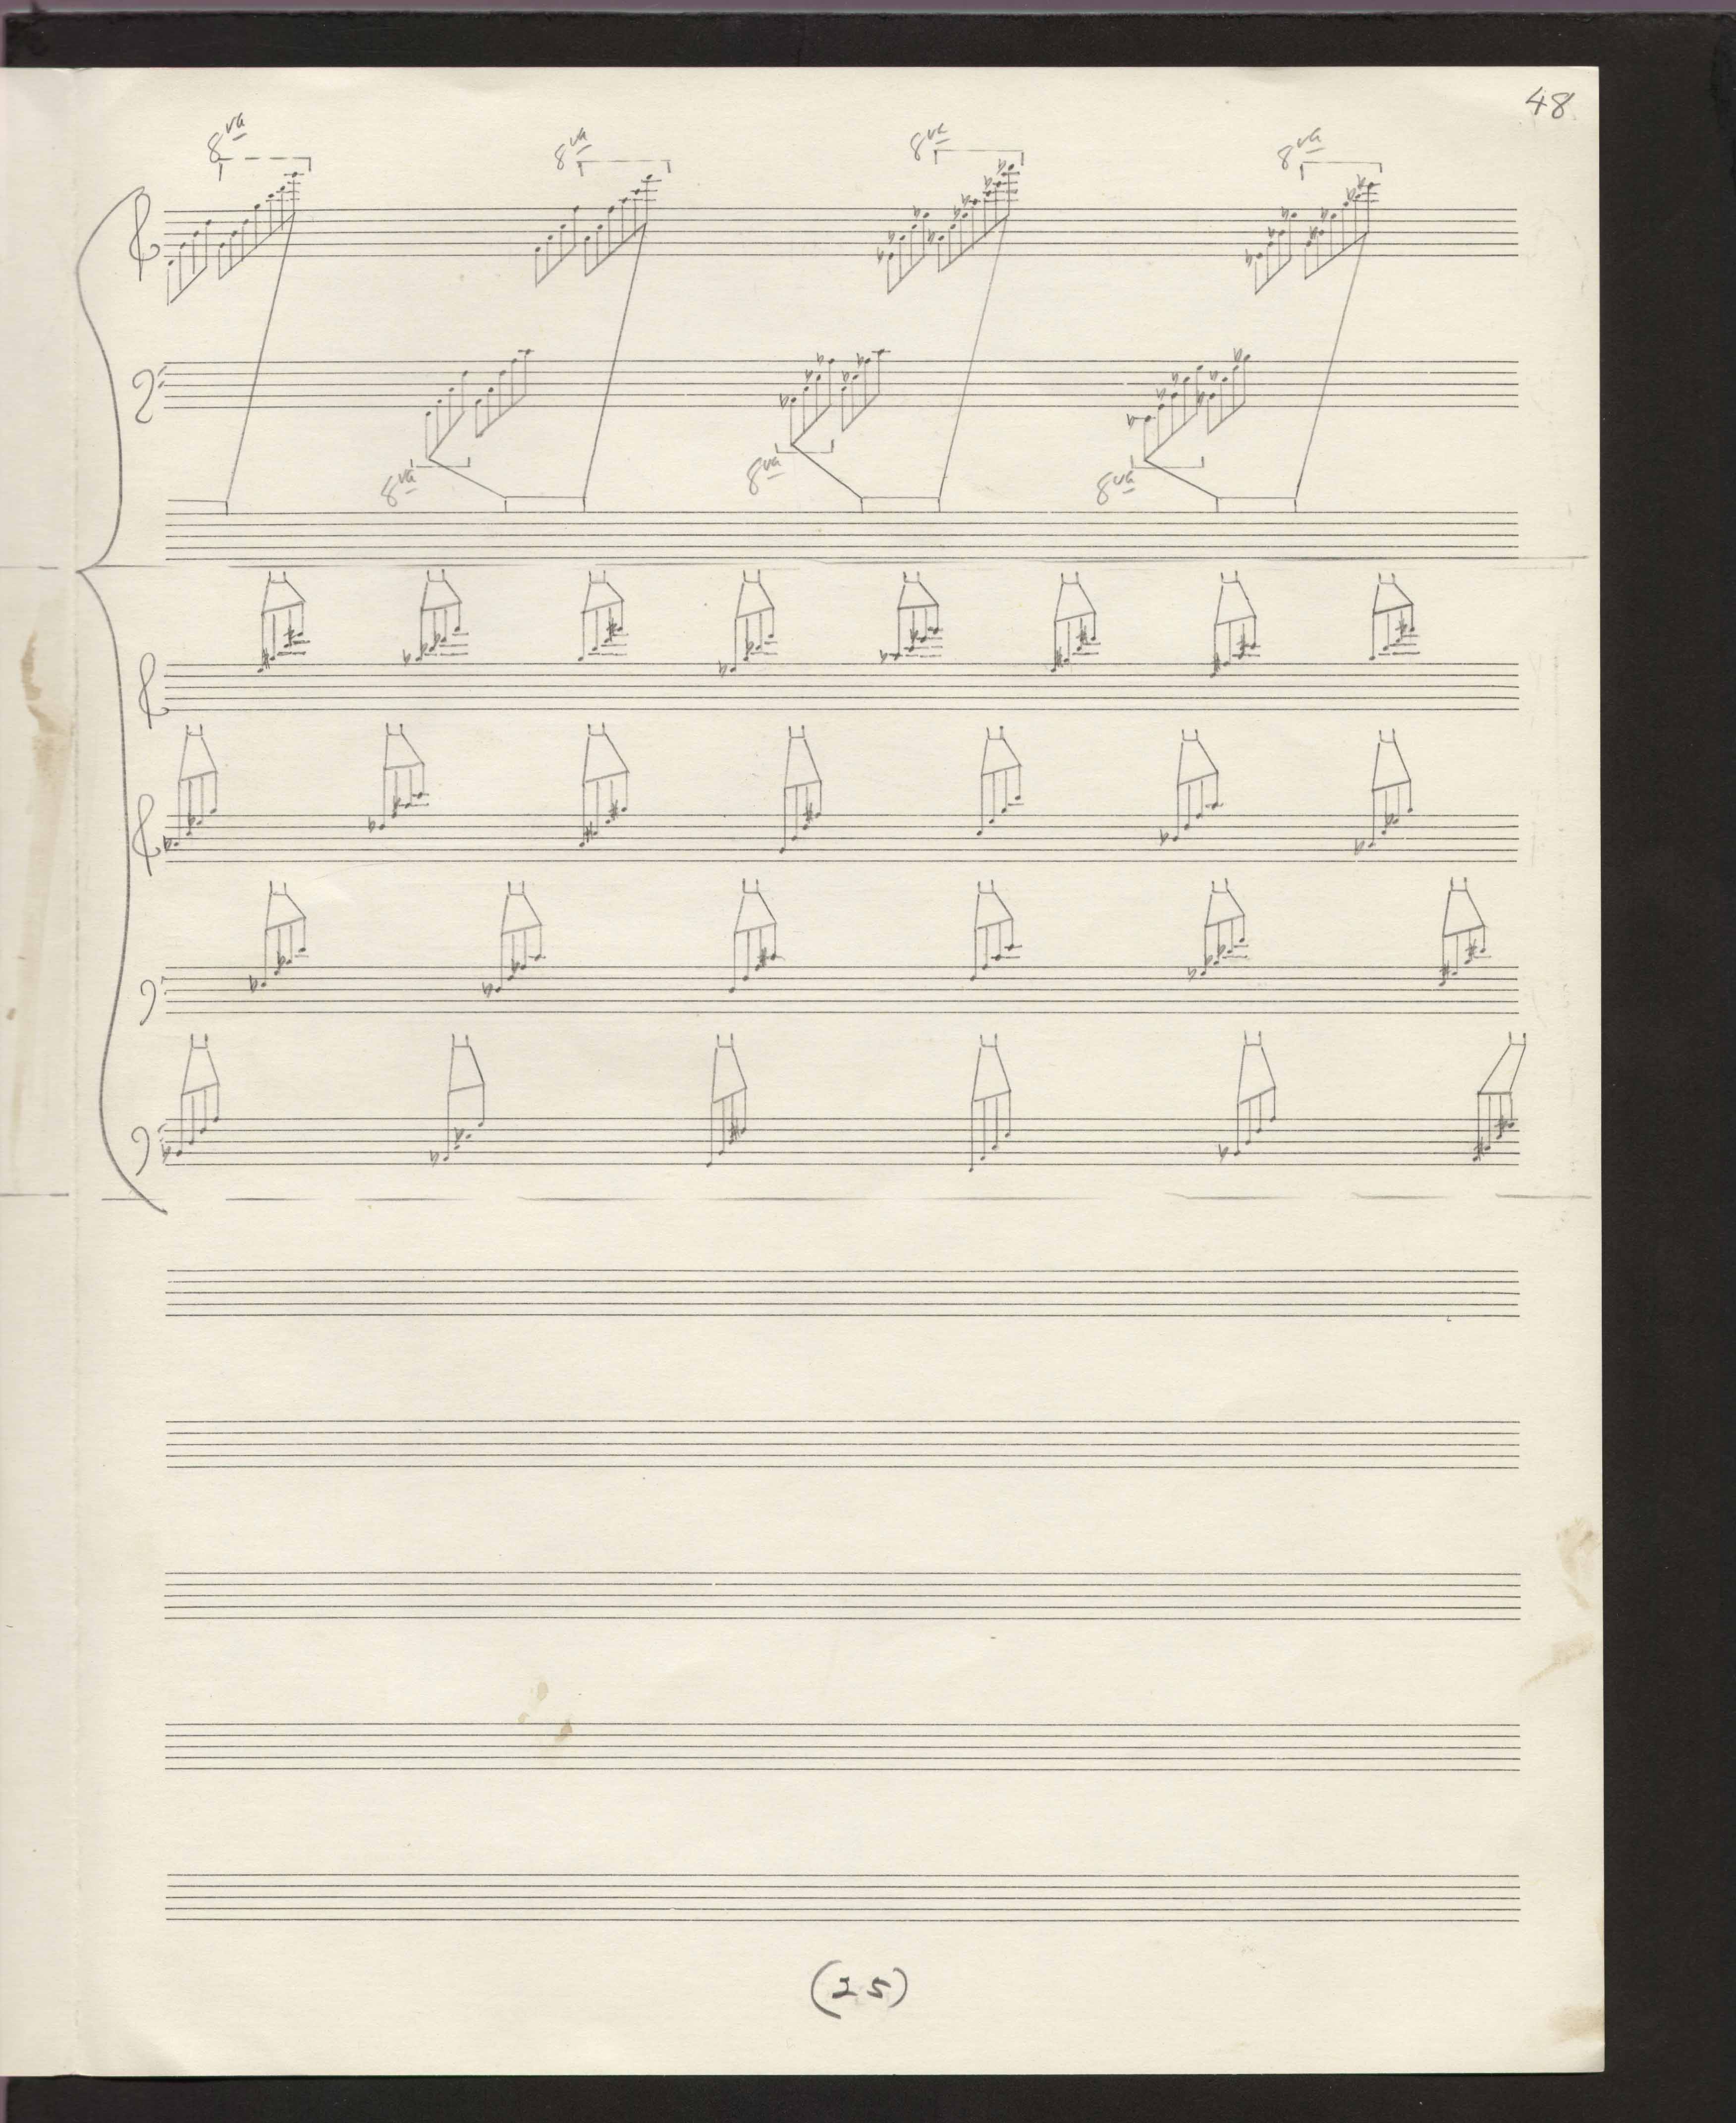 48
8va 8va 8va 8va
8va 8va 8va
(25)